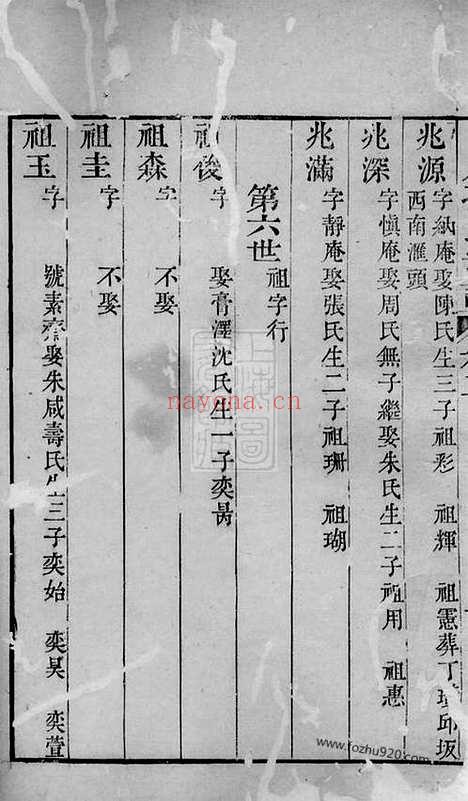 兆源 字納庵娶陳氏生三子祖彩 祖輝 祖憲葬丁 邱坂
西南滙頭
兆深 字愼庵娶周氏無子繼娶朱氏生二子祖用 祖惠
兆滿 字靜庵娶張氏生二子祖珊 祖瑚
第六世 祖字行
祖俊 字 娶膏澤沈氏生一子奕昺
祖森 字 不娶
祖圭 字 不娶
祖玉 字 號素齋娶朱咸壽氏生三子奕始 奕昊 奕萱
nayona.cn
www.fozhu920.com